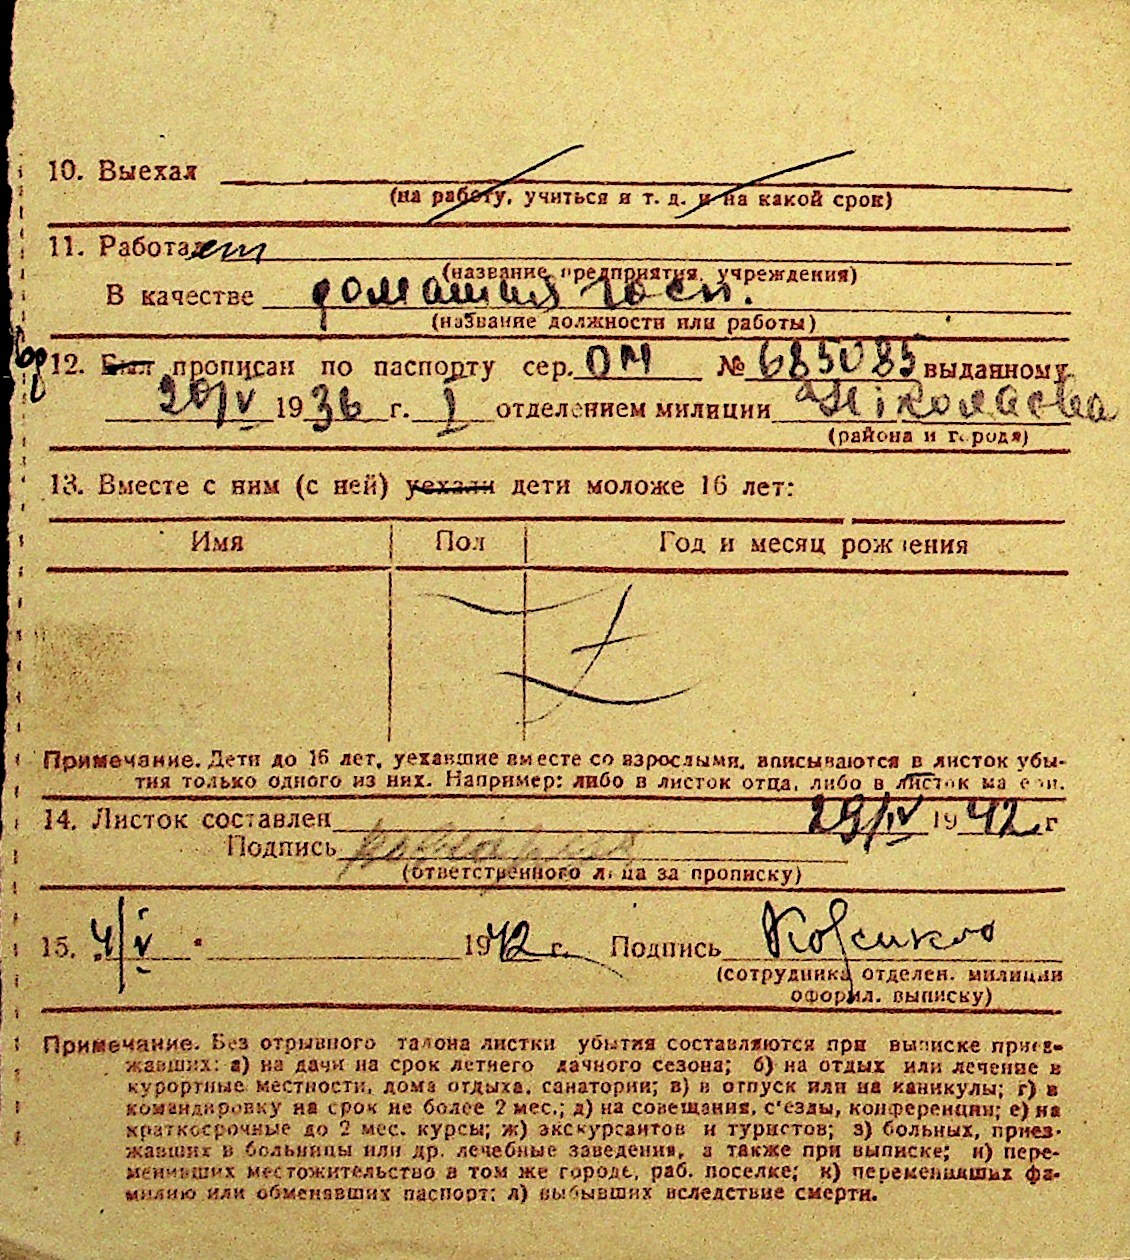 10. Выехал
(на работу, учиться и т. д. и на какой срок)
11. Работает
(название предприятия, учреждения)
В качестве домашняя хозяй.
(название должности или работы)
12. Был прописан по паспорту сер. ОМ № 685085 выданному
20/V 1936 г. I отделением милиции Ніколаєва
(района и города)
13. Вместе с ним (с ней) уехали дети моложе 16 лет:
Имя Пол Год и месяц рождения
Примечание. Дети до 16 лет, уехавшие вместе со взрослыми, вписываются в листок убы-
тия только одного из них. Например: либо в листок отца, либо в листок матери.
14. Листок составлен 29/IV 1942 г
Подпись
(ответственного лица за прописку)
15. 4/V 1942 г. Подпись
(сотрудника отделен. милиции
оформл. выписку)
Примечание. Без отрывного талона листки убытия составляются при выписке приез-
жавших: а) на дачи на срок летнего дачного сезона; б) на отдых или лечение в
курортные местности, дома отдыха, санатории; в) в отпуск или на каникулы; г) в
командировку на срок не более 2 мес.; д) на совещания, с'езды, конференции; е) на
краткосрочные до 2 мес. курсы; ж) экскурсантов и туристов; з) больных, приез-
жавших в больницы или др. лечебные заведения, а также при выписке; и) пере-
менивших местожительство в том же городе, раб. поселке; к) переменивших фа-
милию или обменявших паспорт; л) выбывших вследствие смерти.